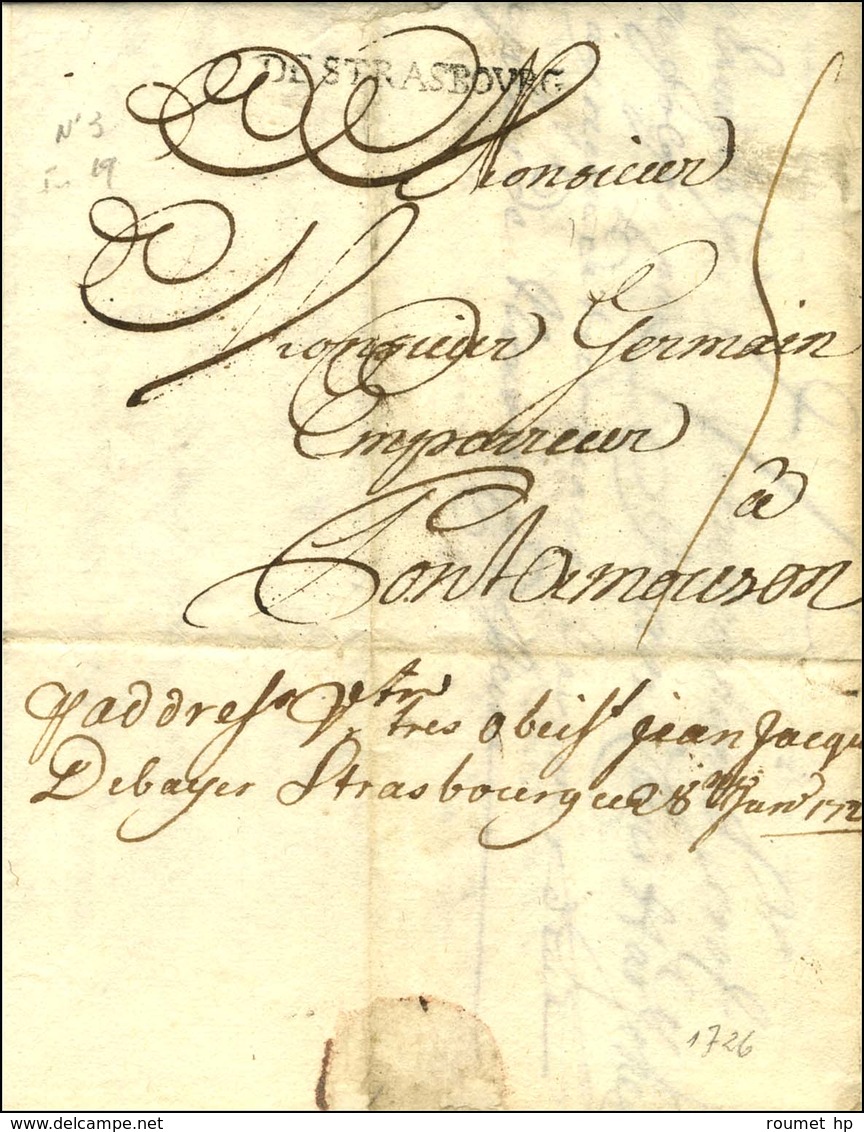 DE STRASBOVRG
N° 3
19
Monsieur
Monsieur Germain
Empoireur
à
Pontamouson
addressr Vetre
tres obeist jean Jacqu
Debayer Strasbourg ce 28 Janv 172
1726
delcampe.net
roumet hp